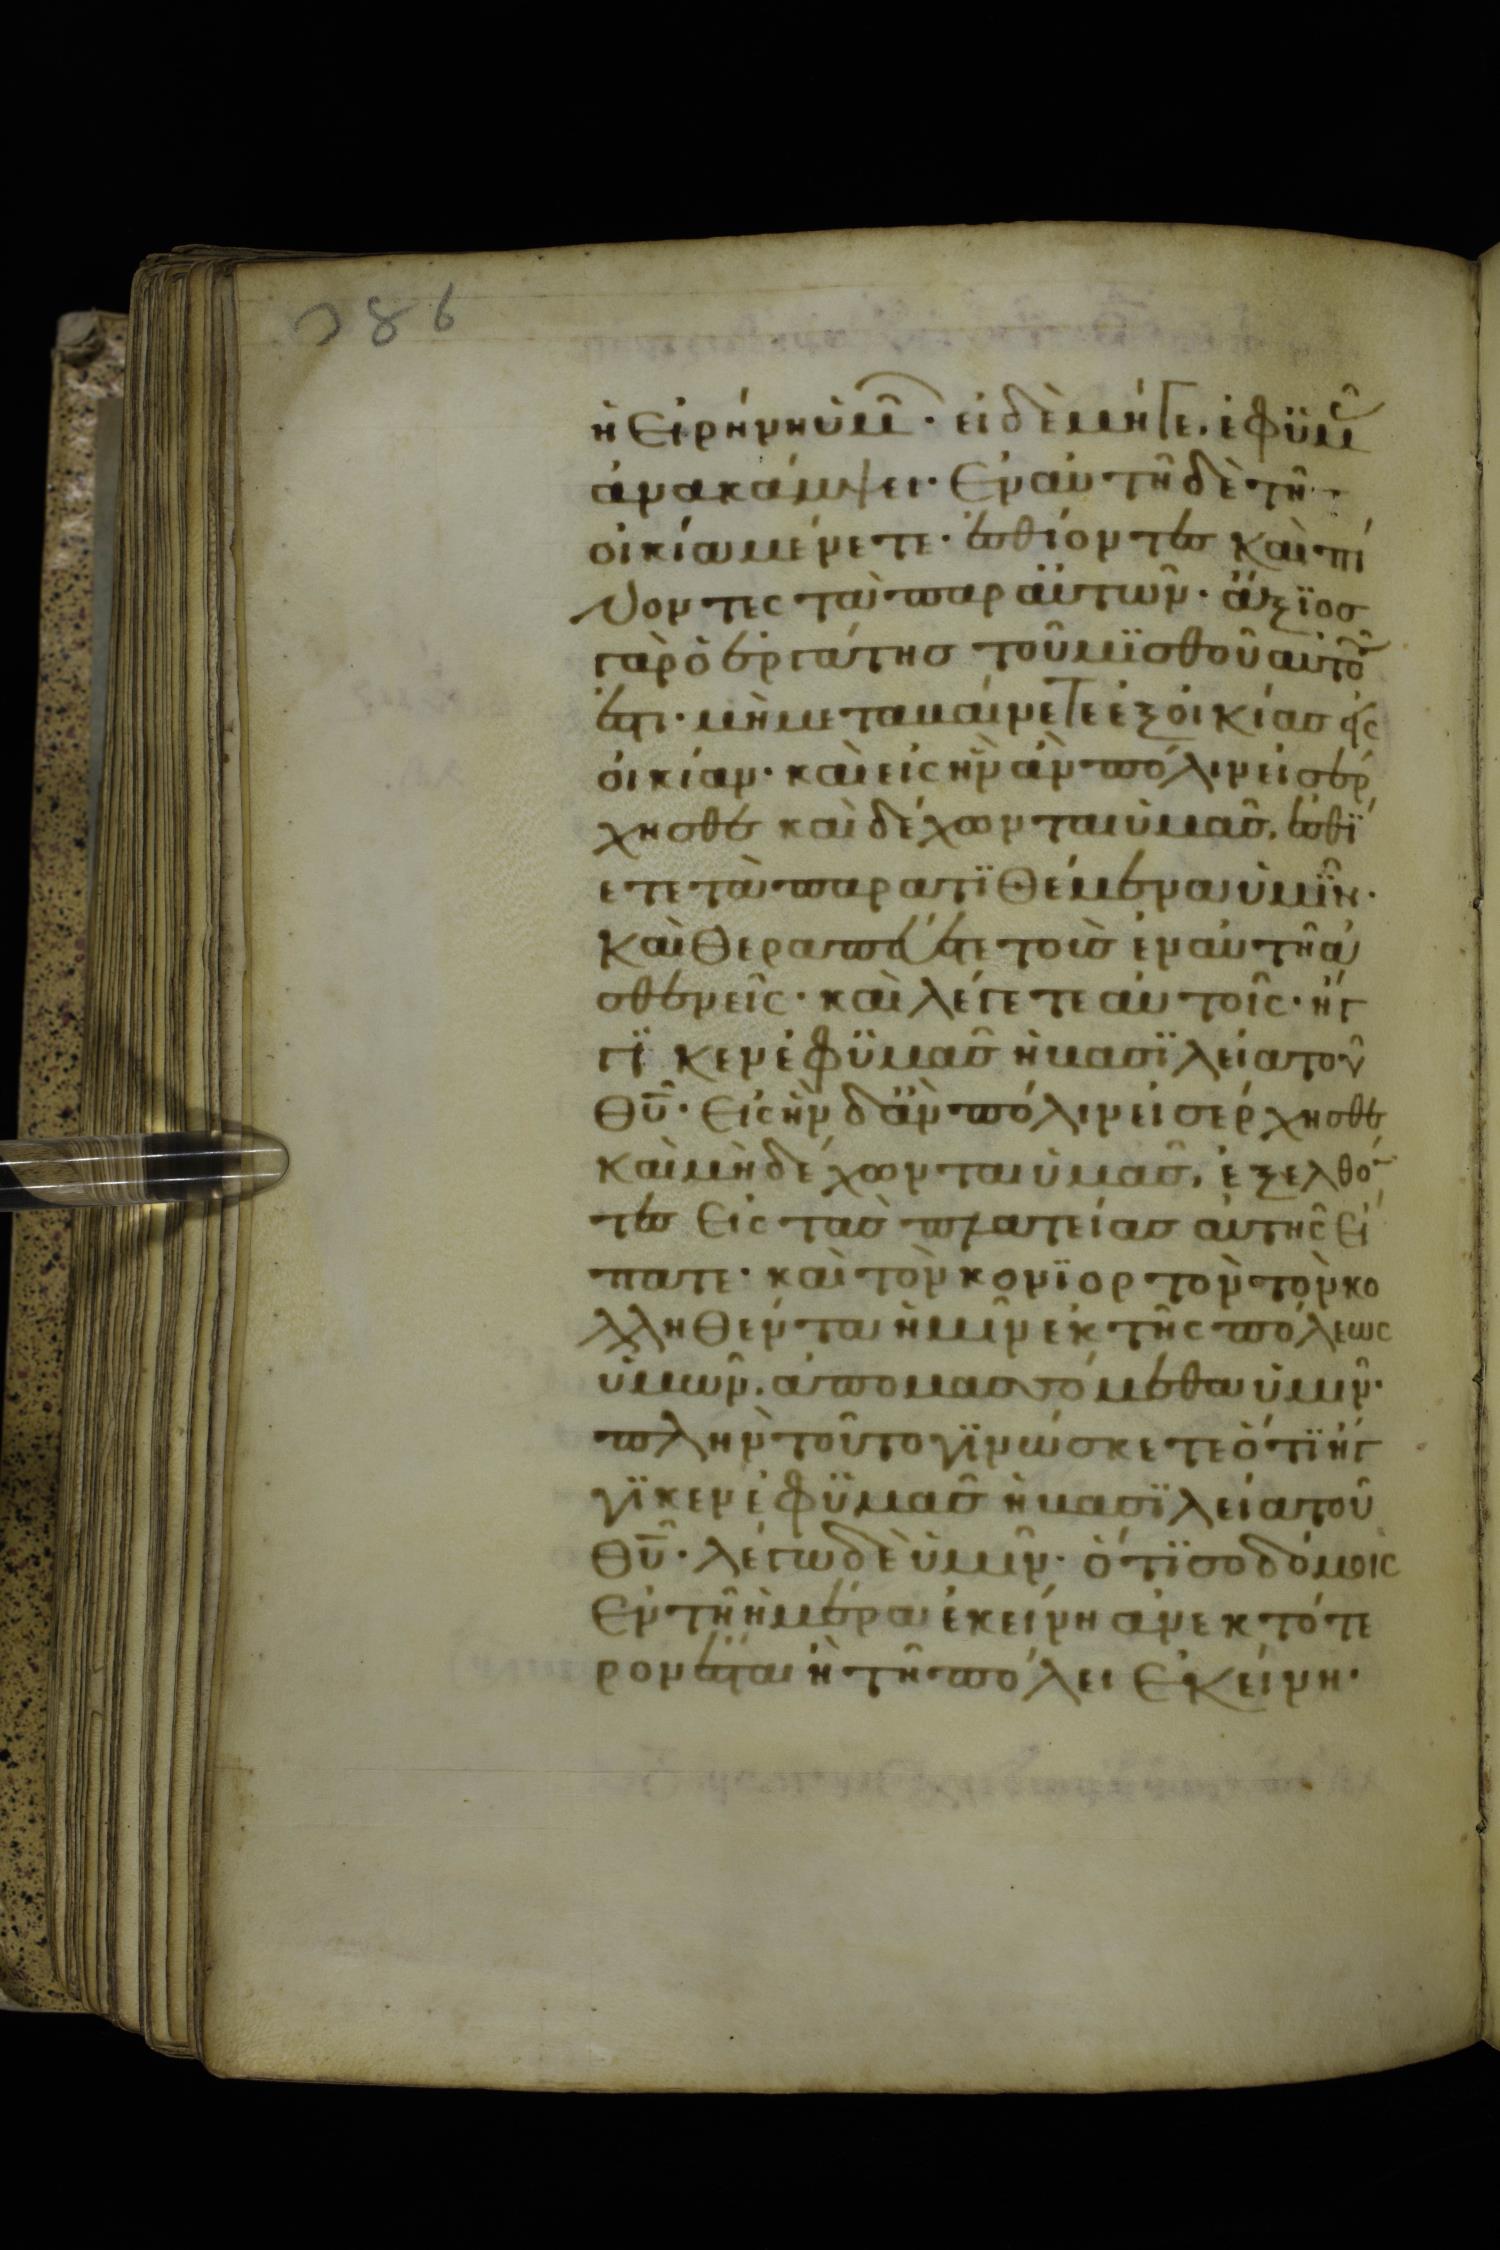 ἡ εἰρήνη ὑμῶν· εἰ δὲ μήγε, ἐφ ὑμᾶς
ἀνακάμψει· Ἐν αὐτῆ δὲ τῆ
οἰκία μένετε· ἐσθίοντες καὶ πί
νοντες τὰ παρ αὐτῶν· ἄξϊος
γὰρ ὁ ἐργάτης τοῦ μϊσθοῦ αὐτοῦ
ἐστι· μὴ μεταβαίνετε ἐξ οἰκίας εἰς
οἰκίαν· καὶ εἰς ἣν ἂν πόλιν εἰσέρ
χησθε καὶ δέχωνται ὑμᾶς, ἐσθΐ
ετε τὰ παρατϊθέμενα ὑμῖν·
καὶ θεραπεύετε τοὺς ἐν αὐτῆ ἀ
σθενεῖς· καὶ λέγετε αὐτοῖς· ἤγ
γϊκεν ἐφ ὑμᾶς ἡ βασϊλεία τοῦ
θῦ· Εἰς ἣν δ ἂν πόλιν εἰσέρχησθε
καὶ μὴ δέχωνται ὑμᾶς, ἐξελθό
τες εἰς τὰς πλατείας αὐτῆς εἴ
πατε· καὶ τὸν κονϊορτὸν τὸν κο
λληθέντα ἡμῖν ἐκ τῆς πόλεως
ὑμῶν, ἀπομασσόμεθα ὑμῖν·
πλὴν τοῦτο γϊνώσκετε ὅτϊ ἤγ
γϊκεν ἐφ ὑμᾶς ἡ βασϊλεία τοῦ
θῦ· λέγω δὲ ὑμῖν· ὅτϊ σοδόμοις
Ἐν τῆ ἡμέρα ἐκείνη ἀνεκτότε
ρον ἔσται ἢ τῆ πόλει ἐκείνη·